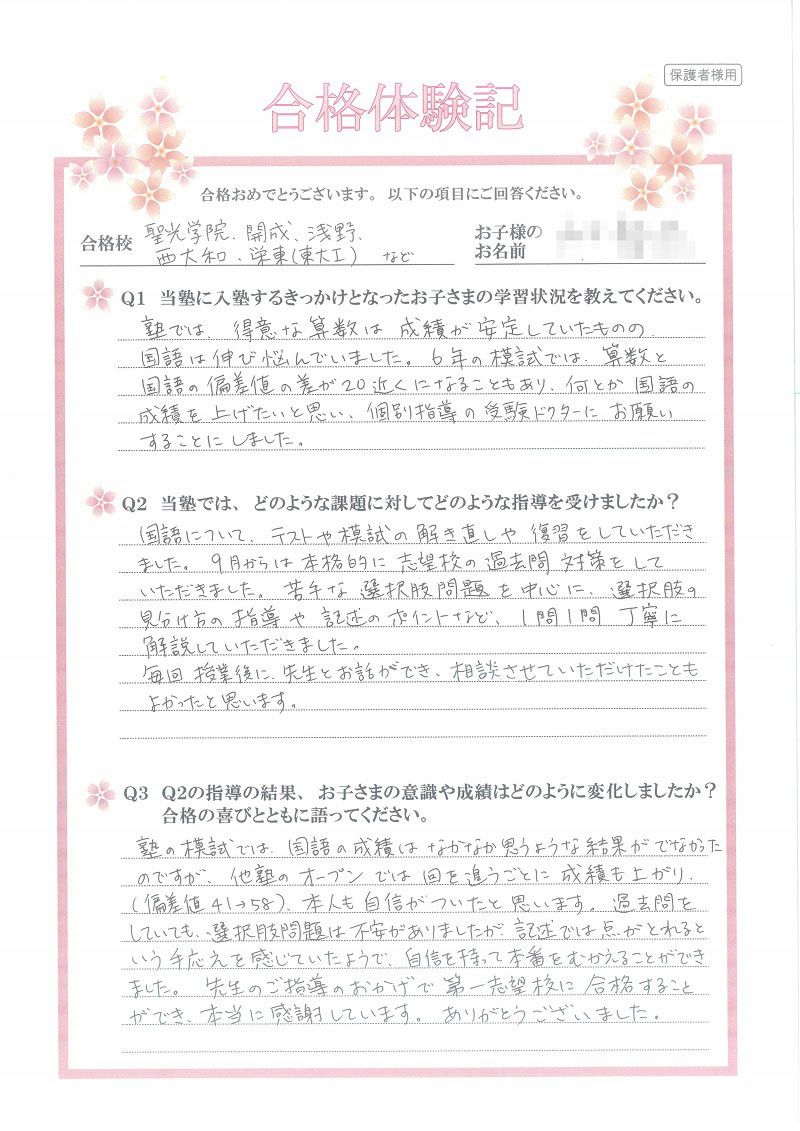 保護者様用
合格体験記
合格おめでとうございます。以下の項目にご回答ください。
合格校 聖光学院、開成、浅野、
西大和、栄東(東大Ⅰ) など
お子様の
お名前
Q1 当塾に入塾するきっかけとなったお子さまの学習状況を教えてください。
塾では、得意な算数は成績が安定していたものの、
国語は伸び悩んでいました。6年の模試では、算数と
国語の偏差値の差が20近くになることもあり、何とか国語の
成績を上げたいと思い、個別指導の受験ドクターにお願い
することにしました。
Q2 当塾では、どのような課題に対してどのような指導を受けましたか？
国語について、テストや模試の解き直しや復習をしていただき
ました。9月からは本格的に志望校の過去問対策をして
いただきました。苦手な選択肢問題を中心に、選択肢の
見分け方の指導や記述のポイントなど、1問1問丁寧に
解説していただきました。
毎回授業後に、先生とお話ができ、相談させていただけたことも
よかったと思います。
Q3 Q2の指導の結果、お子さまの意識や成績はどのように変化しましたか？
合格の喜びとともに語ってください。
塾の模試では、国語の成績はなかなか思うような結果がでなかった
のですが、他塾のオープンでは回を追うごとに成績も上がり、
(偏差値41→58)、本人も自信がついたと思います。過去問を
していても、選択肢問題は不安がありましたが、記述では点がとれると
いう手応えを感じていたようで、自信を持って本番をむかえることができ
ました。先生のご指導のおかげで第一志望校に合格すること
ができ、本当に感謝しています。ありがとうございました。